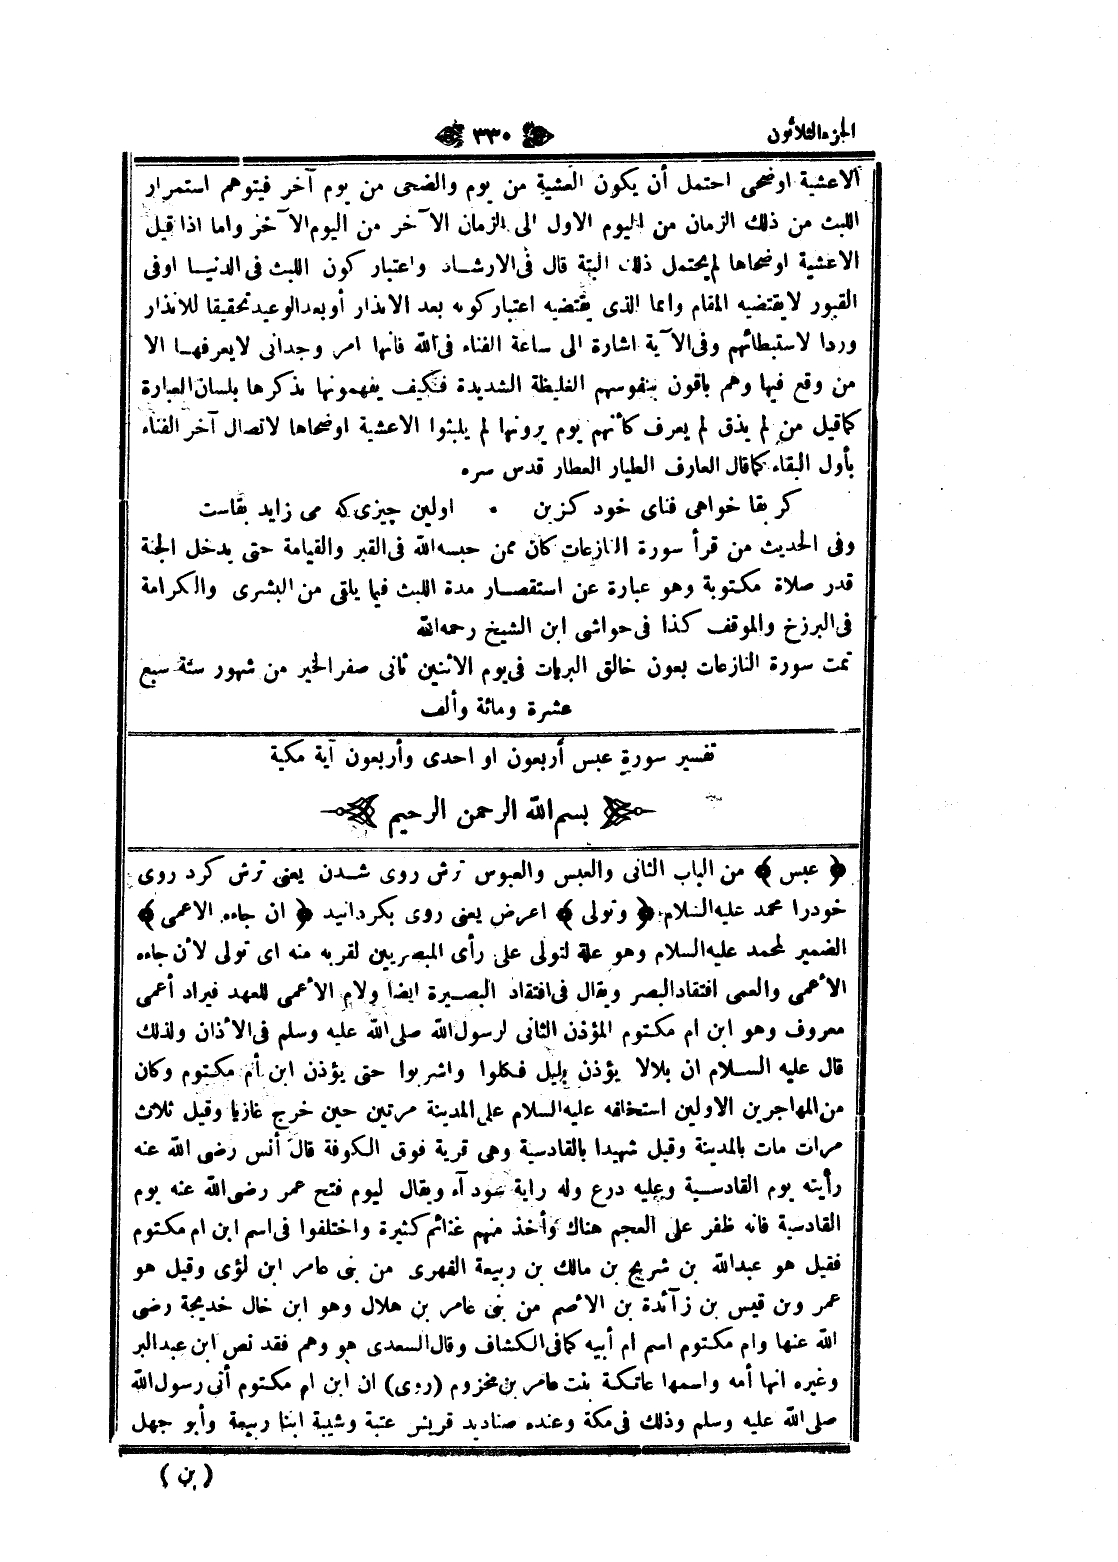 الجزء الثلاثون
٣٣٠
الا عشية او ضحى احتمل أن يكون العشية من يوم والضحى من يوم آخر فيتوهم استمرار
اللبث من ذلك الزمان من اليوم الاول الى الزمان الآخر من اليوم الآخر واما اذا قيل
الا عشية او ضحاها لم يحتمل ذلك البتة قال فى الارشاد واعتبار كون اللبث فى الدنيا او فى
القبور لا يقتضيه المقام وانما الذى يقتضيه اعتبار كونه بعد الانذار أو بعد الوعيد تحقيقا للانذار
وردا لاستبطائهم وفى الآية اشارة الى ساعة الفناء فى الله فانها امر وجدانى لا يعرفها الا
من وقع فيها وهم باقون بنفوسهم الغليظة الشديدة فكيف يفهمونها بذكرها بلسان العبارة
كما قيل من لم يذق لم يعرف كأنهم يوم يرونها لم يلبثوا الا عشية او ضحاها لاتصال آخر الفناء
بأول البقاء كما قال العارف الطيار العطار قدس سره
كر بقا خواهى فناى خود كزين • اولين چيزى كه مى زايد بقاست
وفى الحديث من قرأ سورة النازعات كان ممن حبسه الله فى القبر والقيامة حتى يدخل الجنة
قدر صلاة مكتوبة وهو عبارة عن استقصار مدة اللبث فيما يلقى من البشرى والكرامة
فى البرزخ والموقف كذا فى حواشى ابن الشيخ رحمه الله
تمت سورة النازعات بعون خالق البريات فى يوم الاثنين ثانى صفر الخير من شهور سنة سبع
عشرة ومائة وألف
تفسير سورة عبس أربعون او احدى وأربعون آية مكية
بسم الله الرحمن الرحيم
﴿ عبس ﴾ من الباب الثانى والعبس والعبوس ترش روى شدن يعنى ترش كرد روى
خودرا محمد عليه السلام ﴿ وتولى ﴾ اعرض يعنى روى بكردانيد ﴿ ان جاءه الاعمى ﴾
الضمير لمحمد عليه السلام وهو علة لتولى على رأى البصريين لقربه منه اى تولى لأن جاءه
الأعمى والعمى افتقاد البصر ويقال فى افتقاد البصيرة ايضا ولام الأعمى للعهد فيراد أعمى
معروف وهو ابن ام مكتوم المؤذن الثانى لرسول الله صلى الله عليه وسلم فى الأذان ولذلك
قال عليه السلام ان بلالا يؤذن بليل فكلوا واشربوا حتى يؤذن ابن أم مكتوم وكان
من المهاجرين الاولين استخلفه عليه السلام على المدينة مرتين حين خرج غازيا وقيل ثلاث
مرات مات بالمدينة وقيل شهيدا بالقادسية وهى قرية فوق الكوفة قال أنس رضى الله عنه
رأيته يوم القادسية وعليه درع وله راية سودآء ويقال ليوم فتح عمر رضى الله عنه يوم
القادسية فانه ظفر على العجم هناك وأخذ منهم غنائم كثيرة واختلفوا فى اسم ابن ام مكتوم
فقيل هو عبدالله بن شريح بن مالك بن ربيعة الفهرى من بنى عامر ابن لؤى وقيل هو
عمر وبن قيس بن زآئدة بن الأصم من بنى عامر بن هلال وهو ابن خال خديجة رضى
الله عنها وام مكتوم اسم ام أبيه كما فى الكشاف وقال السعدى هو وهم فقد نص ابن عبدالبر
وغيره انها أمه واسمها عاتكة بنت عامر بن مخزوم (روى) ان ابن ام مكتوم أتى رسول الله
صلى الله عليه وسلم وذلك فى مكة وعنده صناديد قريش عتبة وشيبة ابنا ربيعة وأبو جهل
(بن)